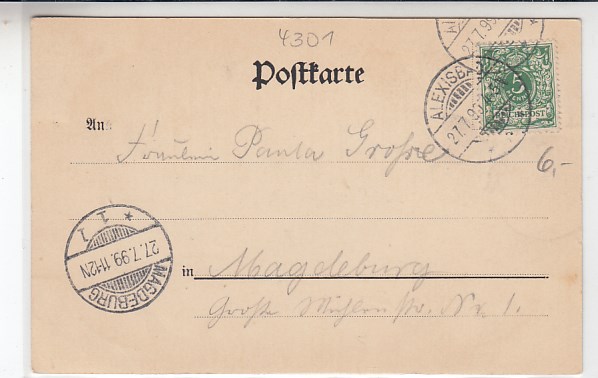 4301
Postkarte
ALEXISBAD
27.7.99
5
REICHSPOST
An
Fräulein Paula Grosse
6,-
in Magdeburg
Große Mühlenstr. Nr. 1.
MAGDEBURG
27.7.99.11-12N
* 1 1